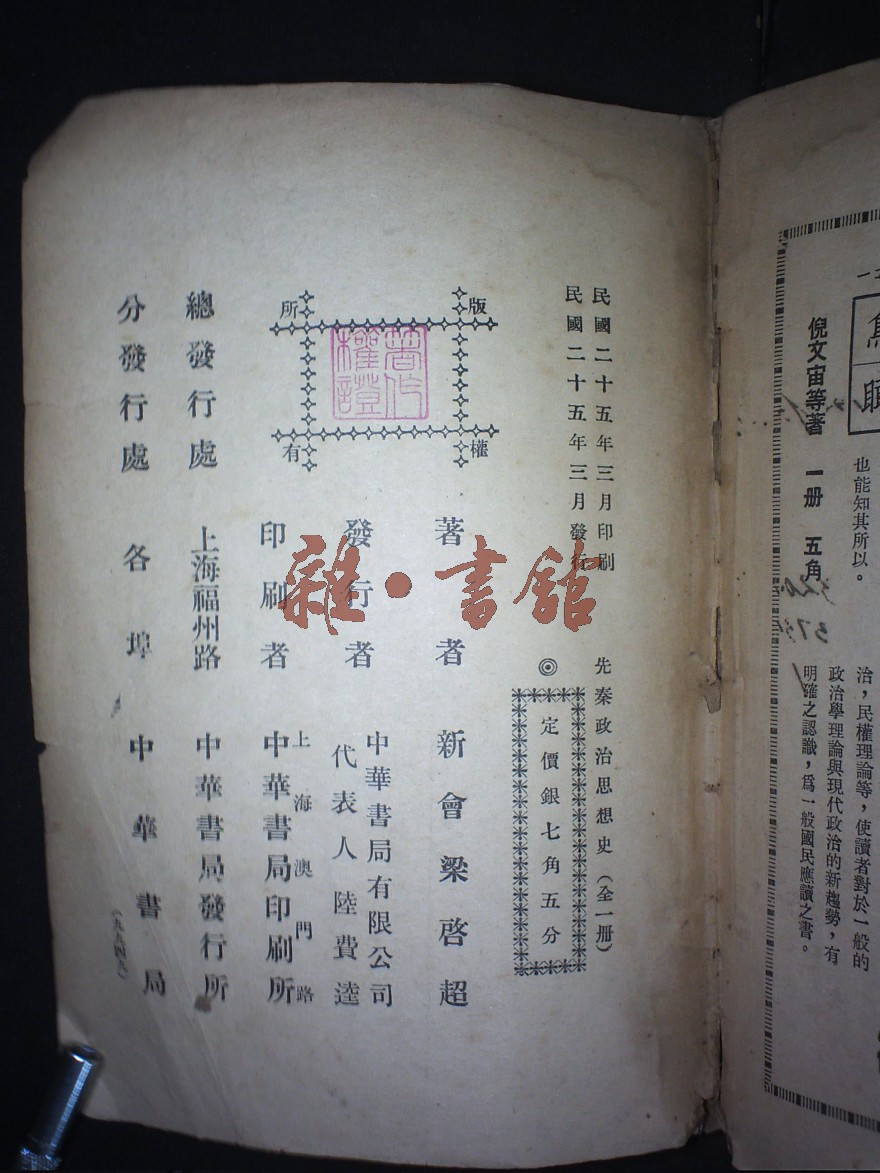 民國二十五年三月印刷
民國二十五年三月發行
先秦政治思想史（全一册）
◎定價銀七角五分
版權所有
著作權證
著者 新會梁啓超
發行者 中華書局有限公司
代表人陸費逵
印刷者 上海澳門路
中華書局印刷所
總發行處 上海福州路 中華書局發行所
分發行處 各埠 中華書局
（九九四九）
雜·書館
倪文宙等著 一册 五角
也能知其所以。
治，民權理論等，使讀者對於一般的
政治學理論與現代政治的新趨勢，有
明確之認識，爲一般國民應讀之書。